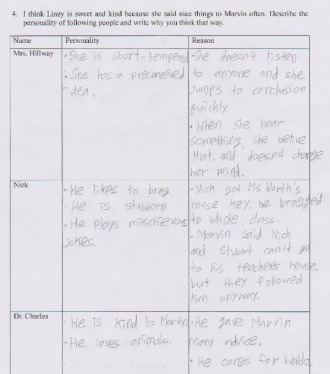 4. I think Linzy is sweet and kind because she said nice things to Marvin often. Describe the
personality of following people and write why you think that way.
Name Personality Reason
Mrs. Hillway
• She is short-tempered
• She has a preconceived
idea.
• She doesn't listen
to anyone, and she
jumps to conclusion
quickly
• When she hear
something, she belive
that, and doesn't change
her mind.
Nick
• He likes to brag
• He is stubborn
• He plays mischievous
jokes.
• Nick got Ms Warth's
house key, he bragged
to whole class.
• Marvin said Nick
and Stuart can't go
to his teacher's house
but they followed
him anyway.
Dr. Charles
• He is kind to Marvin
• He loves animals.
• He gave Marvin
many advice.
• He cares for Waldo